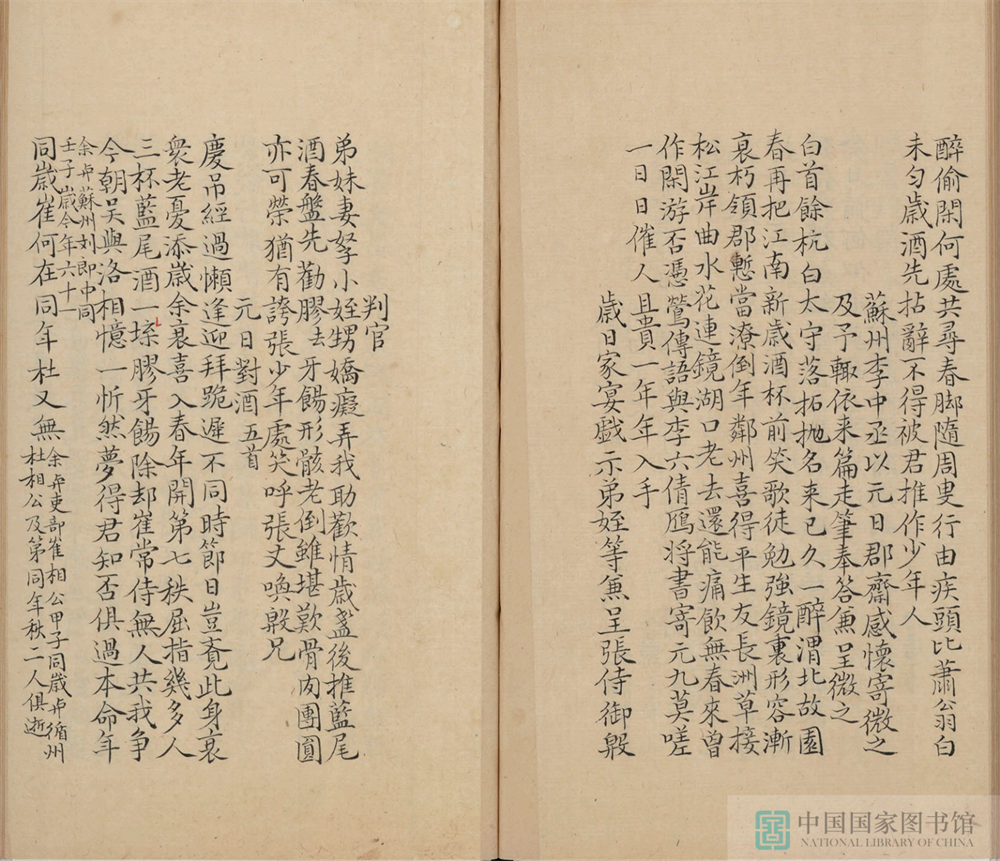 醉偷閑何處共尋春脚隨周叟行由疾頭比蕭翁白
未匀歲酒先拈辭不得被君推作少年人
蘇州李中丞以元日郡齋感懷寄微之
及予輙依来篇走筆奉答兼呈微之
白首餘杭白太守落拓抛名来已久一醉渭北故園
春再把江南新歲酒杯前笑歌徒勉強鏡裏形容漸
衰朽領郡慙當潦倒年鄰州喜得平生友長洲草接
松江岸曲水花連鏡湖口老去還能痛飲無春來曽
作閑游否憑鶯傳語與李六倩鴈将書寄元九莫嗟
一日日催人且貴一年年入手
歲日家宴戲示弟姪等兼呈張侍御殷
判官
弟妹妻孥小姪甥嬌癡弄我助歡情歲盞後推藍尾
酒春盤先勸膠去牙餳形骸老倒雖堪歎骨肉團圓
亦可榮猶有誇張少年處笑呼張丈喚殷兄
元日對酒五首
慶吊經過懶逢迎拜跪遲不同時節日豈覔此身衰
衆老憂添歲余衰喜入春年開第七秩屈指幾多人
三杯藍尾酒一楪膠牙餳除却崔常侍無人共我争
今朝吴與洛相憶一忻然夢得君知否俱過本命年
余与蘇州刘郎中同
壬子歲今年六十一
同歲崔何在同年杜又無
余与吏部崔相公甲子同歲与循州
杜相公及第同年秋二人俱逝
中国国家图书馆
NATIONAL LIBRARY OF CHINA